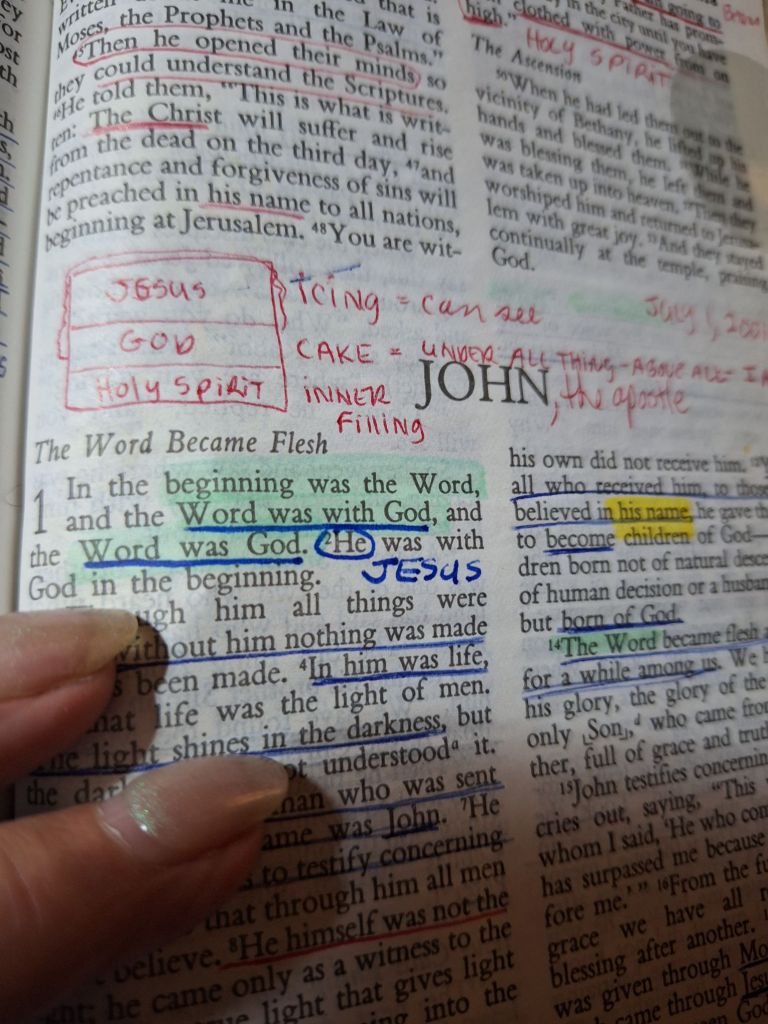 written
that is
in the Law of
Moses, the Prophets and the Psalms."
45Then he opened their minds so
they could understand the Scriptures.
46He told them, "This is what is writ-
ten: The Christ will suffer and rise
from the dead on the third day, 47and
repentance and forgiveness of sins will
be preached in his name to all nations,
beginning at Jerusalem. 48You are wit-
going to
Father has prom-
in the city until you have
clothed with power from on
high."
HOLY SPIRIT
The Ascension
50When he had led them out to the
vicinity of Bethany, he lifted up his
hands and blessed them. 51While he
was blessing them, he left them and
was taken up into heaven. 52Then they
worshiped him and returned to Jerusa-
lem with great joy. 53And they stayed
continually at the temple, praising
God.
JESUS
GOD
HOLY SPIRIT
ICING = can see
CAKE = UNDER ALL THING - ABOVE ALL - I
INNER
Filling
July 1, 200
JOHN, the apostle
The Word Became Flesh
1 In the beginning was the Word,
and the Word was with God, and
the Word was God. 2He was with
God in the beginning. JESUS
him all things were
without him nothing was made
been made. 4In him was life,
that life was the light of men.
The light shines in the darkness, but
the understooda it.
man who was sent
was John. 7He
to testify concerning
that through him all men
believe. 8He himself was not the
he came only as a witness to the
light that gives light
into the
his own did not receive him.
all who received him, to those
believed in his name, he gave
to become children of God—
dren born not of natural
of human decision or a
but born of God.
14The Word became flesh
for a while among us. We
his glory, the glory of the
only Son,d who came from
ther, full of grace and
15John testifies
cries out, saying, "This
whom I said, 'He who
has surpassed me because
fore me.' " 16From the
grace we have all
blessing after another.
was given through
came through
God